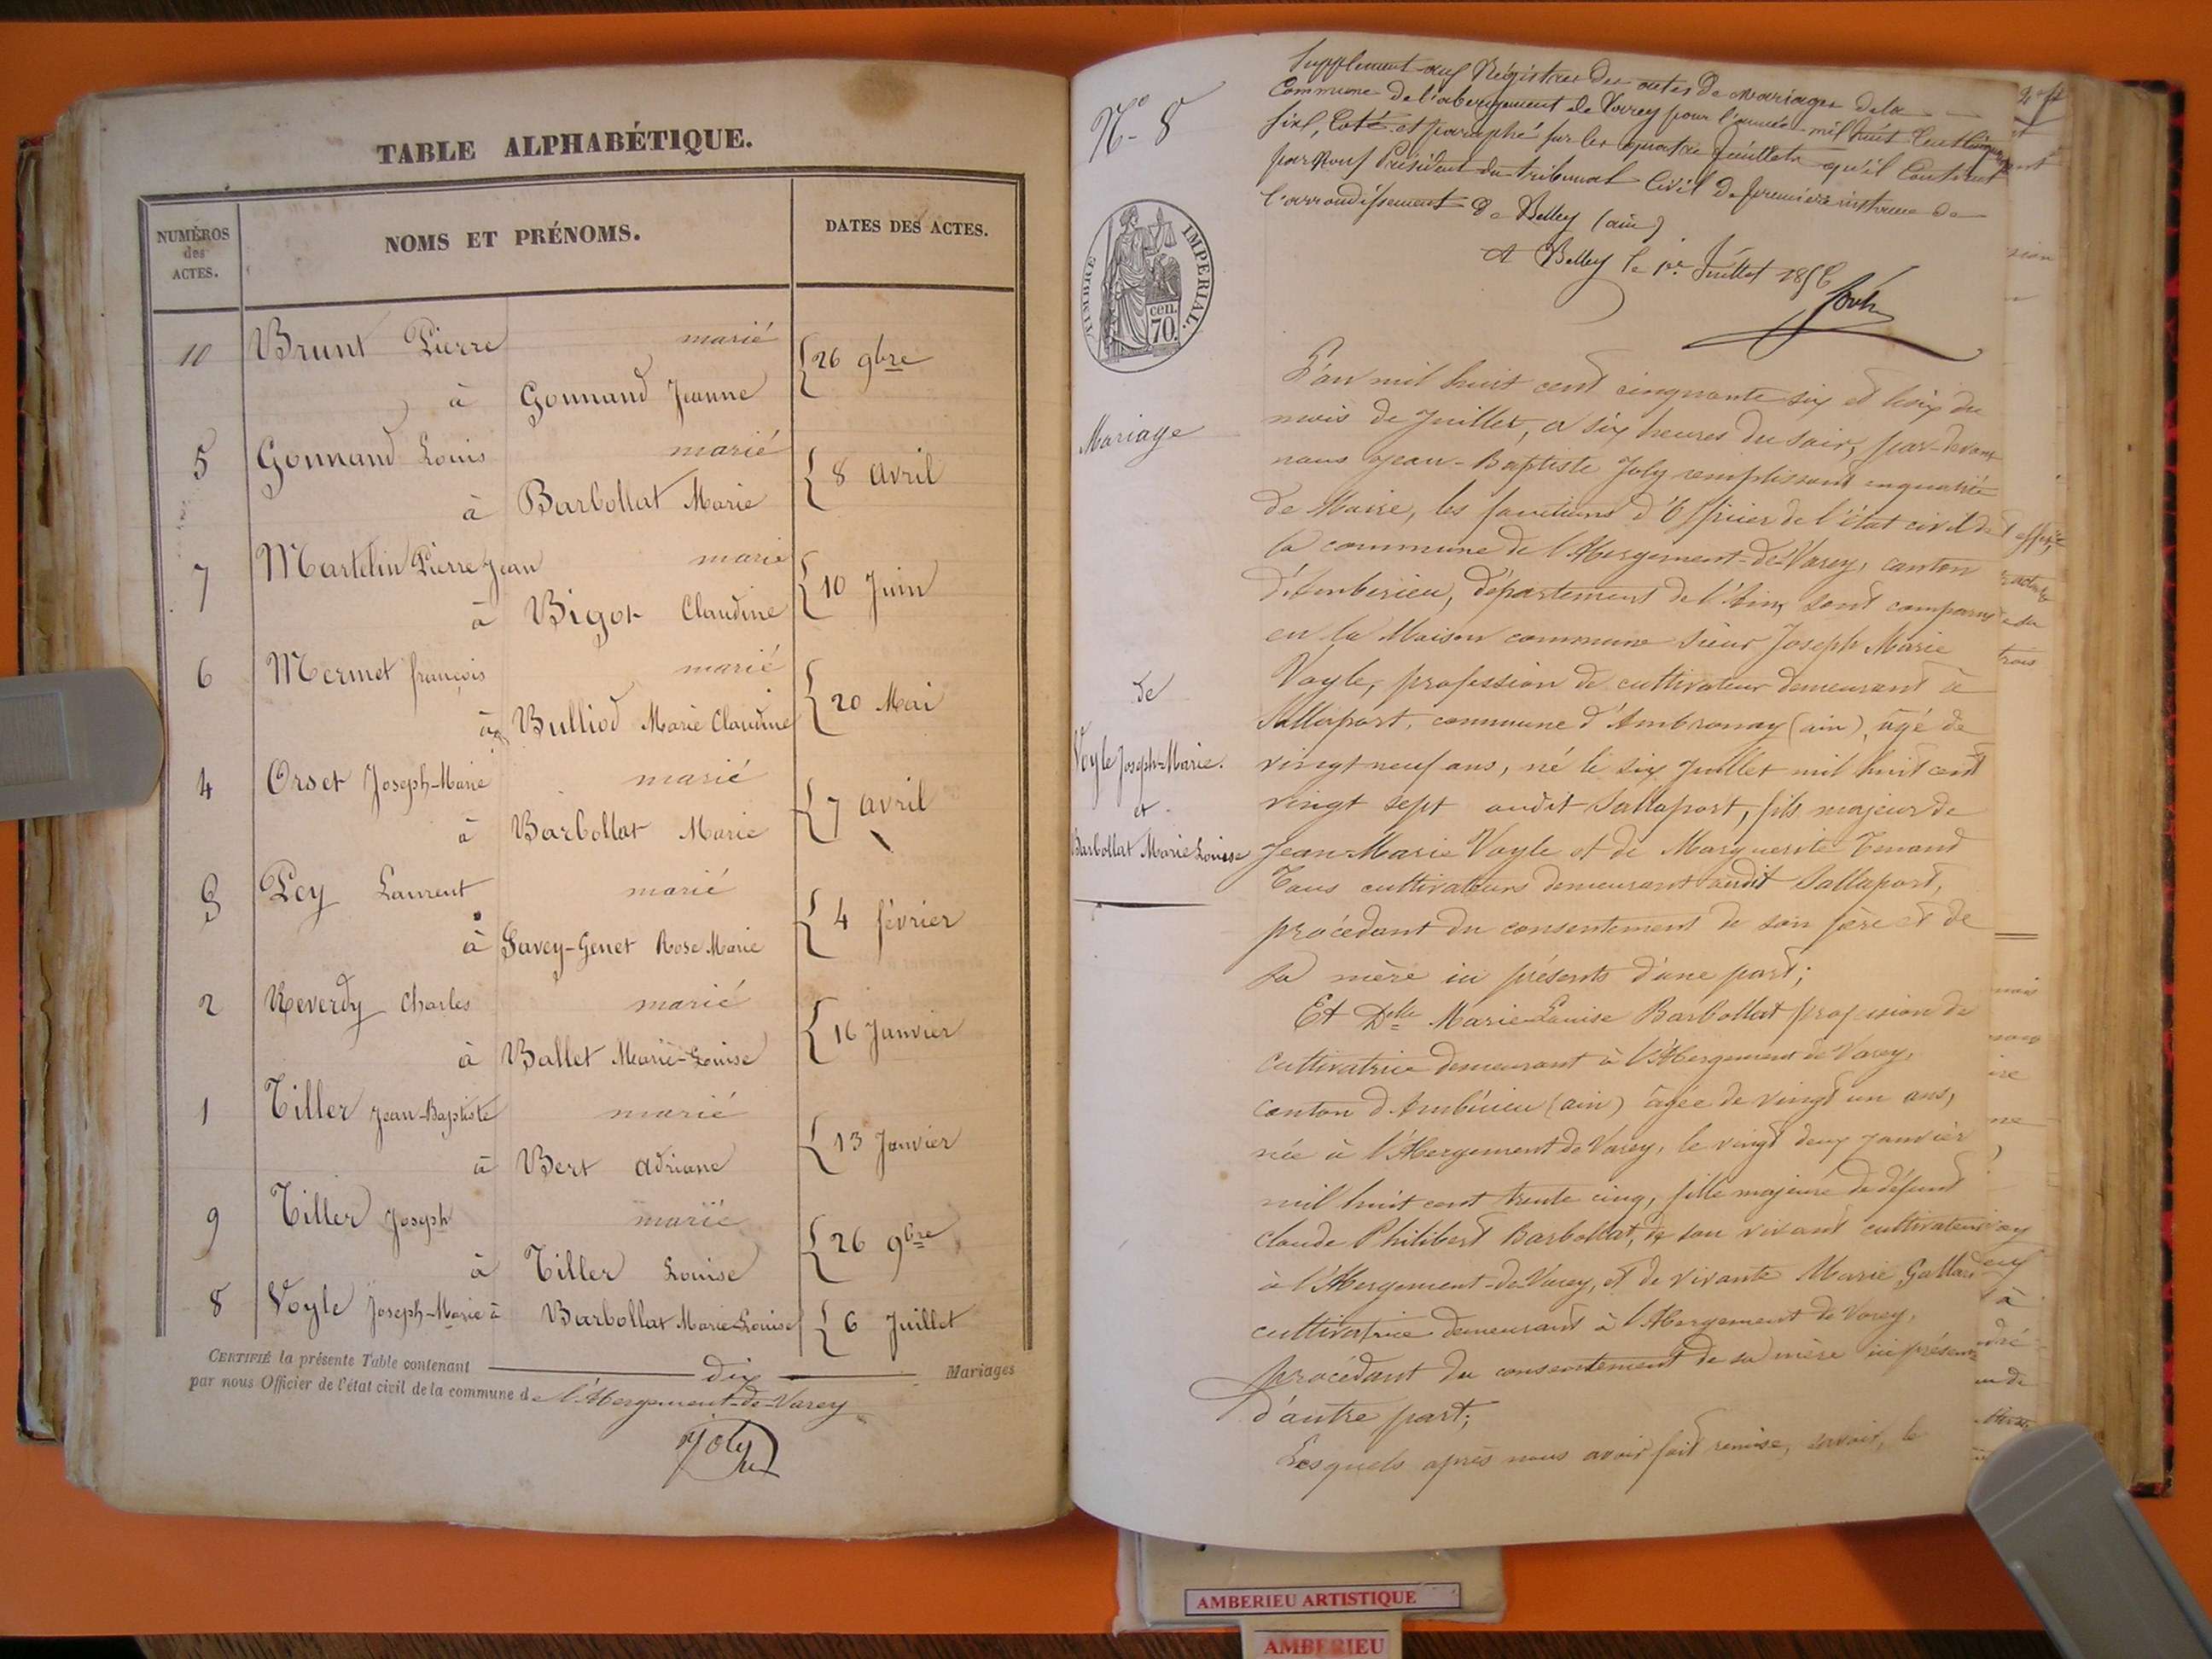 TABLE ALPHABÉTIQUE.
NUMÉROS des ACTES.
NOMS ET PRÉNOMS.
DATES DES ACTES.
10 Brunt Pierre marié
à Gonnand Jeanne
26 9bre
5 Gonnand Louis marié
à Barbollat Marie
8 avril
7 Martelin Pierre Jean marié
à Bigot Claudine
10 Juin
6 Mermet françois marié
à Bulliod Marie Claudine
20 Mai
4 Orset Joseph-Marie marié
à Barbollat Marie
7 avril
3 Pey Laurent marié
à Savey-Genet Rose Marie
4 février
2 Reverdy Charles marié
à Ballet Marie-Louise
16 Janvier
1 Tiller Jean-Baptiste marié
à Bert adriane
13 Janvier
9 Tiller Joseph marié
à Tiller Louise
26 9bre
8 Voyle Joseph-Marie à Barbollat Marie-Louise 6 Juillet
CERTIFIÉ la présente Table contenant dix Mariages
par nous Officier de l'état civil de la commune de l'Abergement-de-Varey
Joly
N° 8
Supplement aux Régistres des actes de mariages de la
Commune de l'abergement de Varey pour l'année mil huit Cent Cinquante
six, Coté et paraphé sur les quatre feuillets qu'il Contient
par Nous Président du tribunal Civil de première instance de
l'arrondissement de Belley (ain)
A Belley le 1er Juillet 1856
TIMBRE IMPERIAL.
cen.
70.
Mariage
de
Voyle Joseph-Marie.
et
Barbollat Marie Louise
L'an mil huit cent cinquante six et le six du
mois de Juillet, a six heures du soir, par-devant
nous Jean-Baptiste Joly remplissant en qualité
de Maire, les fonctions d'Officier de l'état civil de
la commune de l'Abergement-de-Varey, canton
d'Ambérieu, département de l'Ain, sont comparus
en la Maison commune sieur Joseph Marie
Voyle, profession de cultivateur demeurant à
Sallaport, commune d'Ambronay (ain), âgé de
vingt neuf ans, né le six Juillet mil huit cent
vingt sept audit Sallaport, fils majeur de
Jean-Marie Voyle et de Marguerite Tenand
Tous cultivateurs demeurant audit Sallaport,
procédant du consentement de son père et de
sa mère ici présents d'une part;
Et Delle Marie-Louise Barbollat profession de
cultivatrice demeurant à l'Abergement de Varey,
canton d'Ambérieu (ain) agée de vingt un ans,
née à l'Abergement de Varey, le vingt deux Janvier
mil huit cent trente cinq, fille majeure de défunt
Claude Philibert Barbollat, de son vivant cultivateur
à l'Abergement-de-Varey, et de vivante Marie
cultivatrice demeurant à l'Abergement de Varey,
procédant du consentement de sa mère ici présente
d'autre part;
Lesquels après nous avoir fait remise, savoir, le
AMBERIEU ARTISTIQUE
AMBERIEU